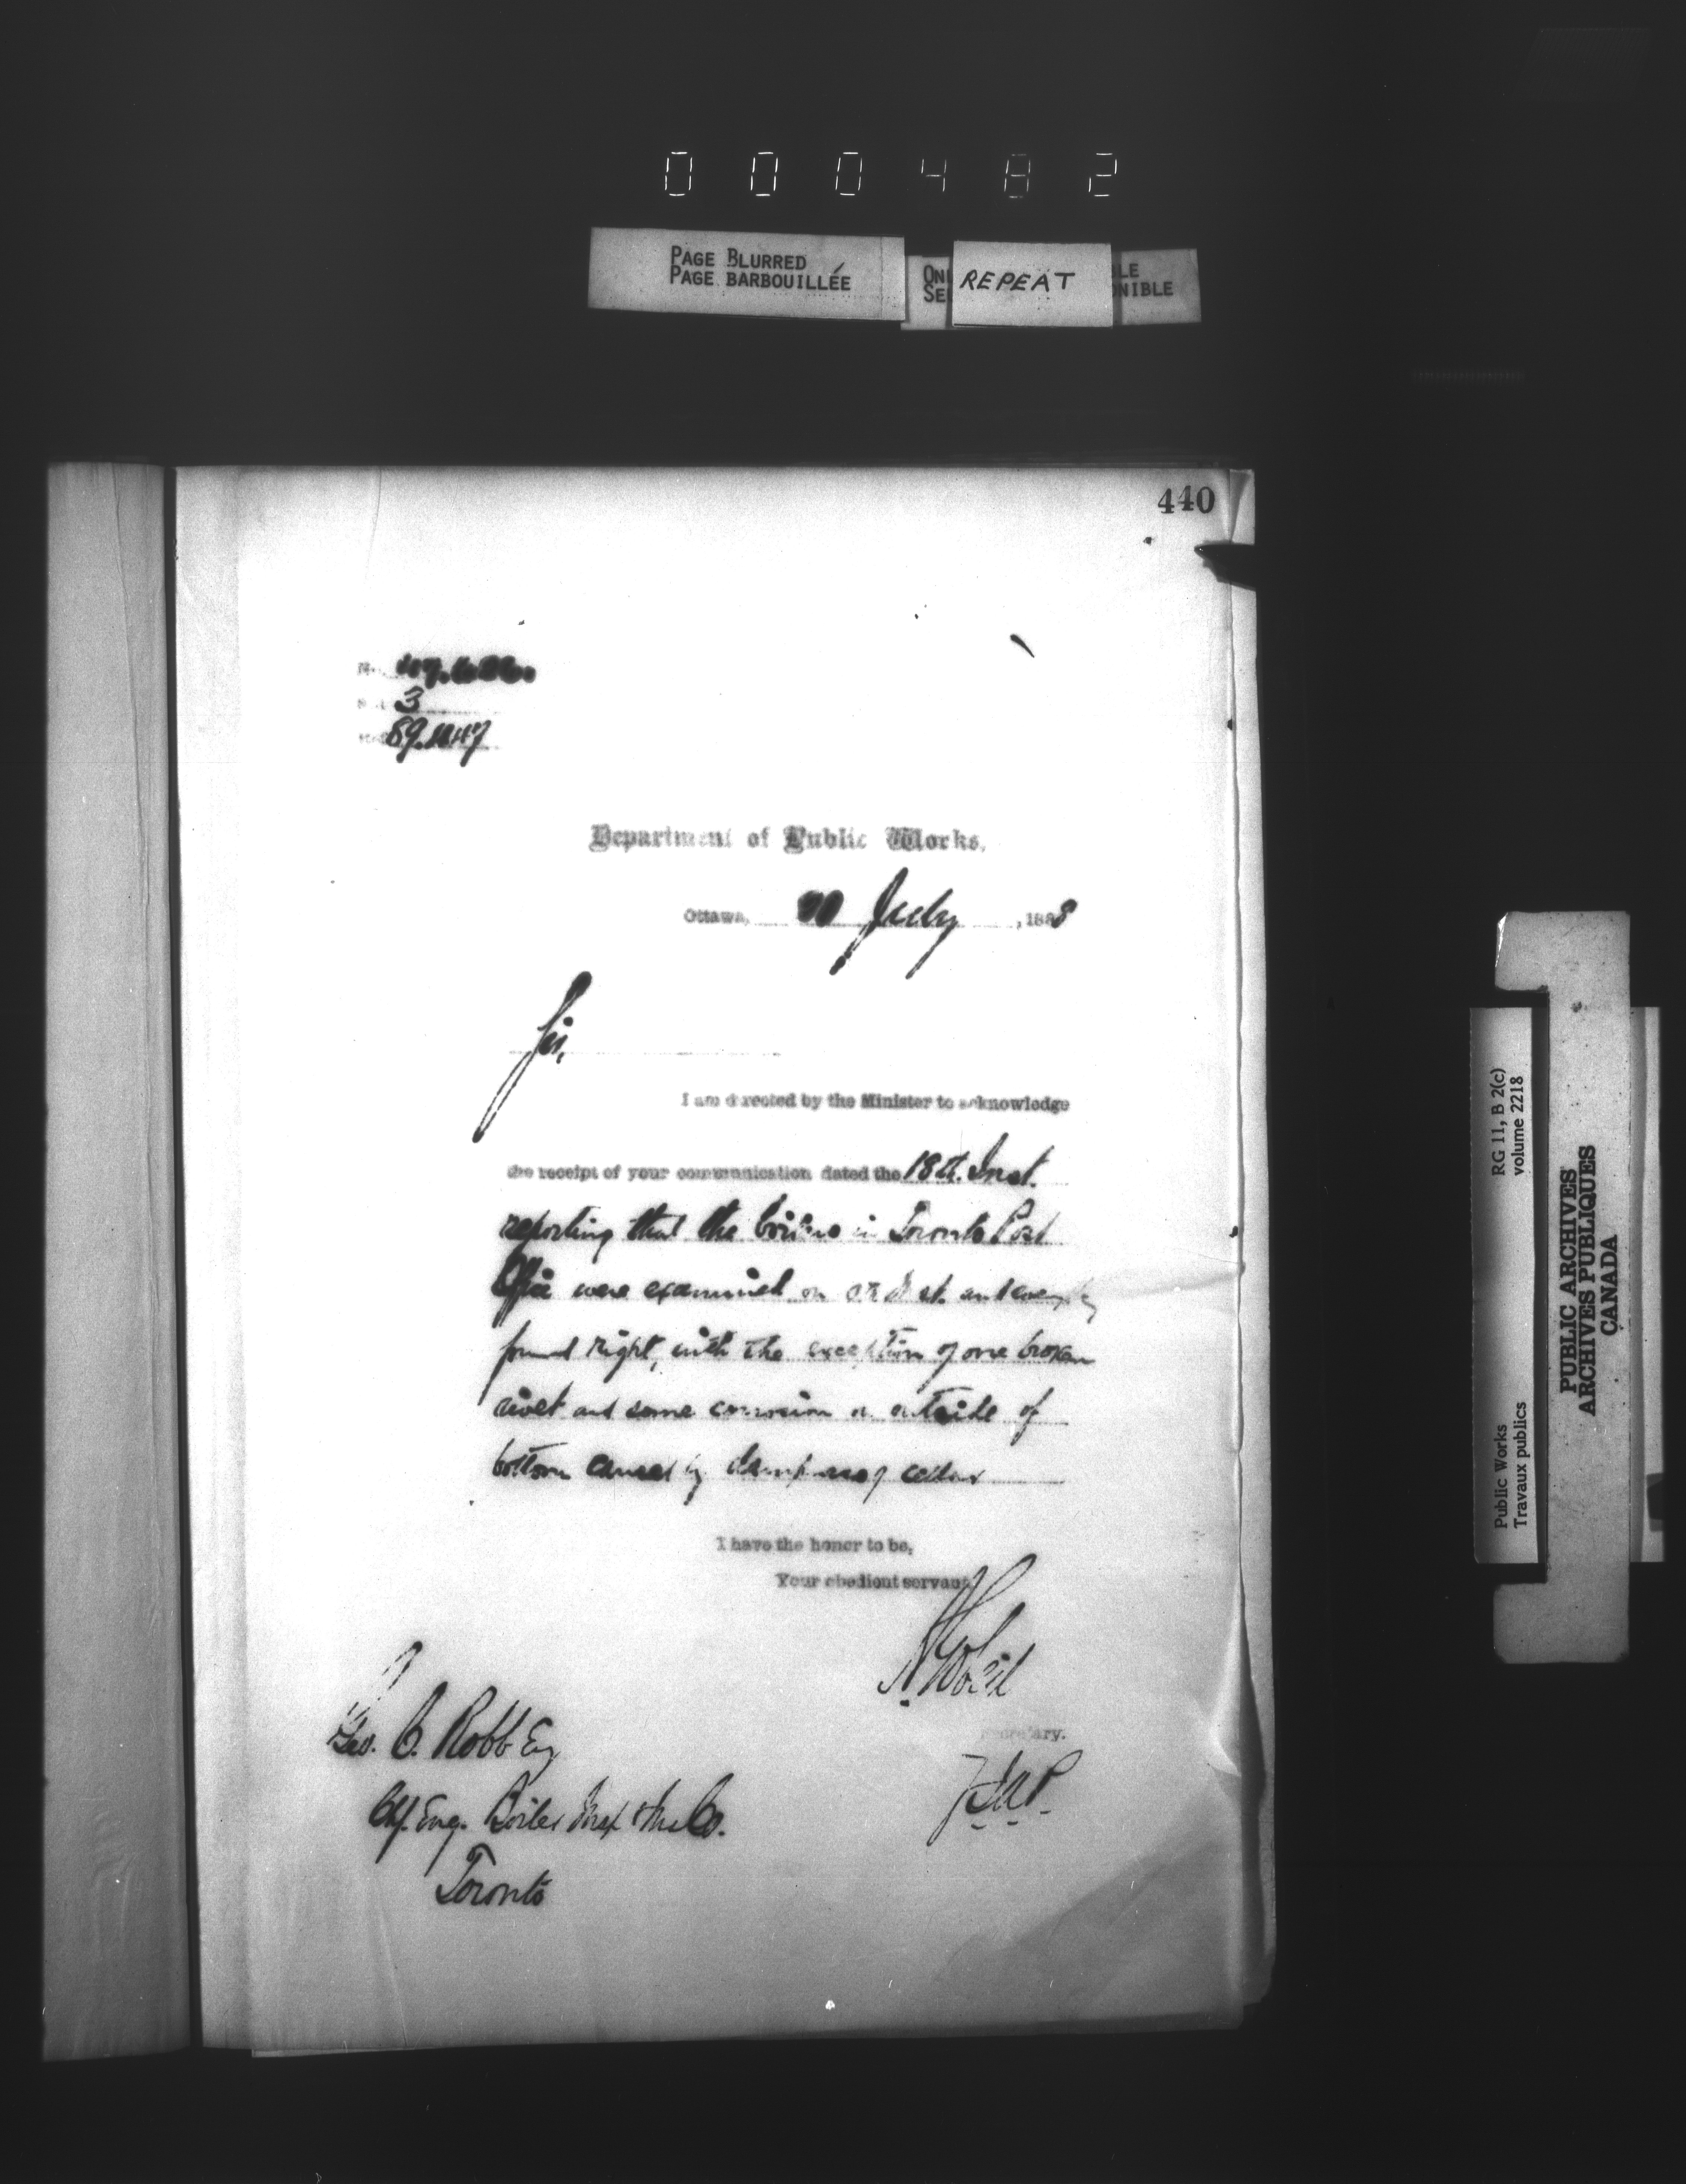 000482
PAGE BLURRED
PAGE BARBOUILLÉE
REPEAT
440
3
Department of Public Works.
Ottawa, July, 1888
Sir,
I am directed by the Minister to acknowledge
the receipt of your communication dated the 18th. Inst.
reporting that the boilers in Toronto Post
Office were examined on
found right, with the exception of one broken
rivet and some corrosion on outside of
bottom caused by dampness of cellar
I have the honor to be,
Your obedient servant
A Gobeil
Secretary.
Geo. C. Robb Esq
Chf. Eng. Boiler Insp & Ins Co.
Toronto
Public Works
Travaux publics
RG 11, B 2(c)
volume 2218
PUBLIC ARCHIVES
ARCHIVES PUBLIQUES
CANADA